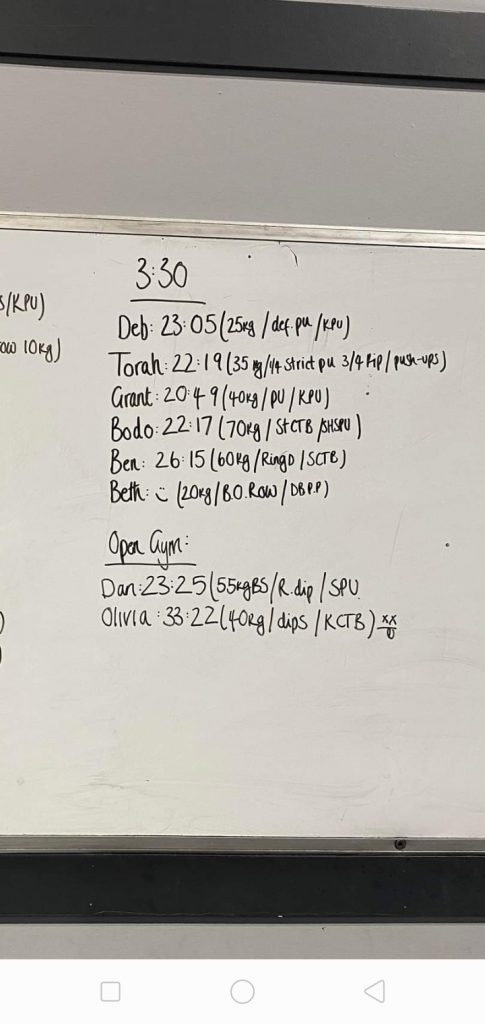 S/KPU)
ow 10kg)
3:30
Deb: 23:05 (25kg / def. pu / KPU)
Torah: 22:19 (35kg / 44 strict pu 3/4 Kip / push-ups)
Grant: 20:49 (40kg / PU / KPU)
Bodo: 22:17 (70kg / StCTB / SHSPU)
Ben: 26:15 (60kg / RingD / SCTB)
Beth: (20kg / B.O. Row / DB P.P)
Open Gym:
Dan: 23:25 (55kg BS / R. dip / SPU
Olivia: 33:22 (40kg / dips / KCTB) xx
)
)